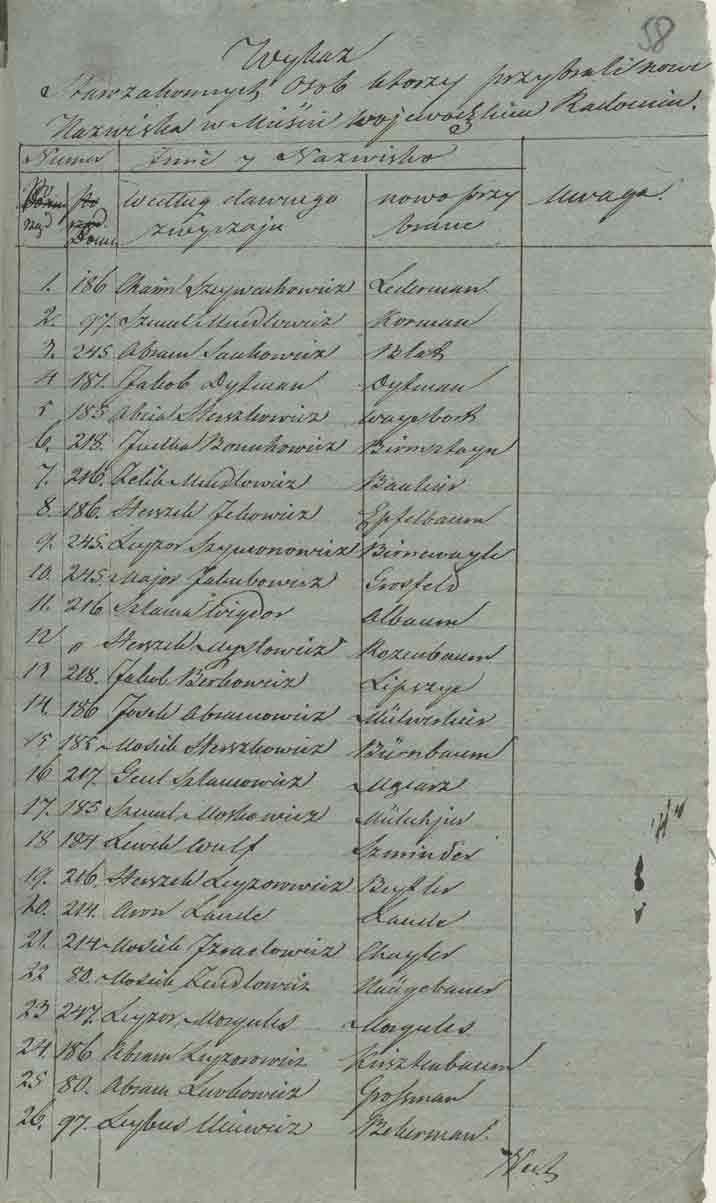 58
Wykaz
Starozakonnych Osob ktorzy przybrali nowe
Nazwiska w Mieście Wojewodzkim Radomiu.
Numer Jmie y Nazwisko
według dawnego nowo przy Uwaga.
Domu zwyczaju brane
1. 186 Chaim Lederman
2. 97. Szmul Mendlowicz Korman
3. 245 Abram Jankowicz Blat
4 181. Jakob Dytman Dytman
5 185 Herszkowicz Waysbort
6. 218. Birnsztayn
7. 216. Zelik Mendlowicz
8. 186. Herszek Epfelbaum
9. 245. Leyzor Szymonowicz Birnewayle
10. 245. Major Jakubowicz Grosfeld
11. 216 Szlama Wigdor Albaum
12 " Herszek Rozenbaum
13 218. Jakob Berkowicz Lipszyc
14. 186 Josek Abramowicz
15 185 Mosiek Herszkowicz Bürnbaum
16 217. Szlamowicz
17. 185 Szmul Moskowicz
18 184 Lewek Wulf Szminder
19. 216. Herszek Leyzorowicz Beytler
20. 214. Aron Laude Laude
21. 214 Mosiek Jzraelowicz Chayter
22 80. Mosiek Zendlowicz Naügebauer
23 247. Leyzor Morgules Morgules
24. 186 Abram Leyzorowicz Kirsztenbaum
25 80. Abram Lewkowicz Großman
26. 97. Leybus Bekerman.